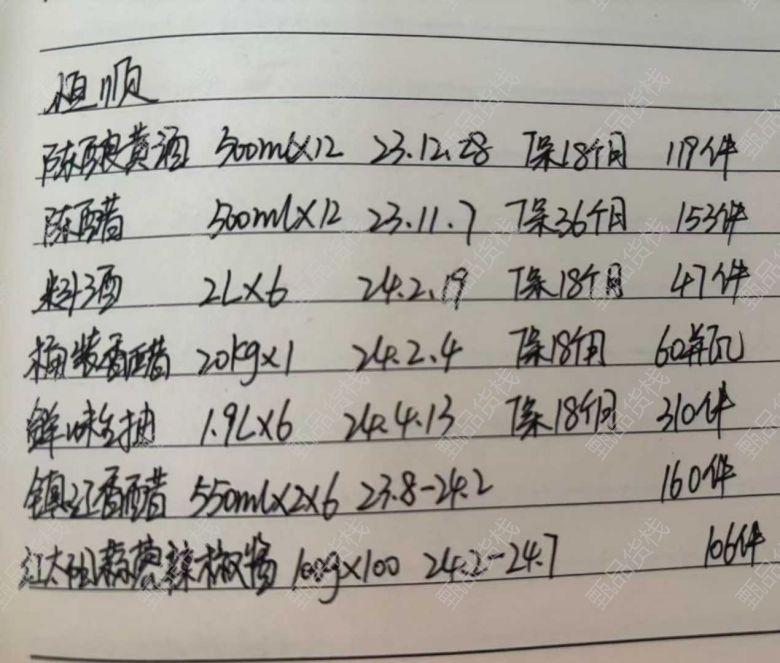 恒顺
陈酿黄酒 500ml×12 23.12.28 保18个月 119件
陈醋 500ml×12 23.11.7 保36个月 153件
料酒 2L×6 24.2.19 保18个月 47件
桶装香醋 20kg×1 24.2.4 保18个月 60并瓦
鲜味生抽 1.9L×6 24.4.13 保18个月 310件
镇江香醋 550ml×2×6 23.8-24.2 160件
蒜蓉辣椒酱 100g×100 24.2-24.7 106件
甄品货栈